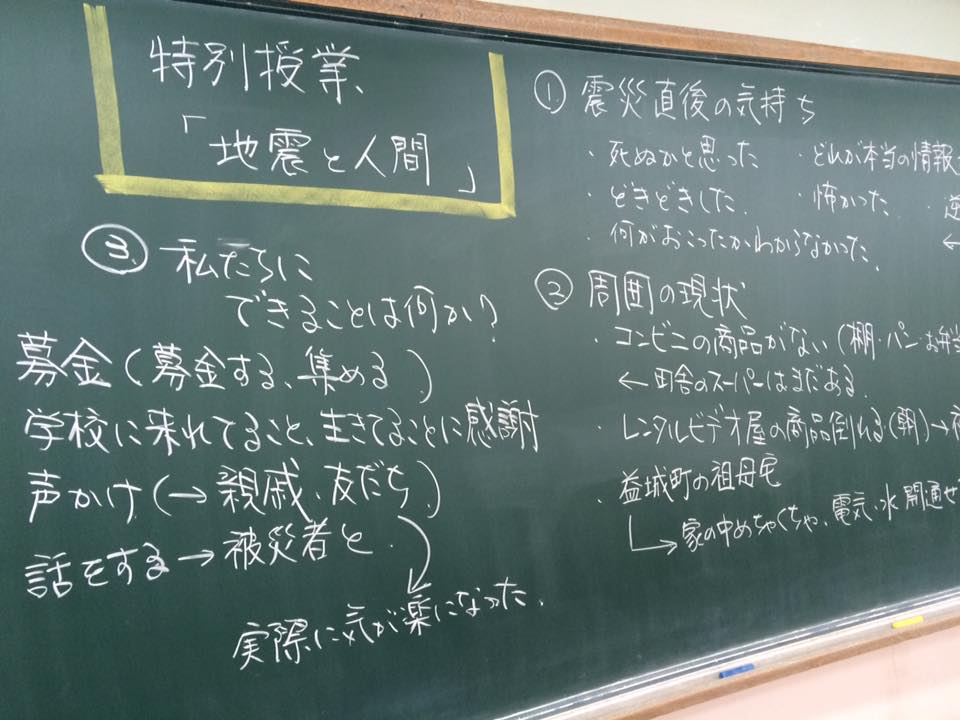 特別授業
「地震と人間」
① 震災直後の気持ち
・死ぬかと思った ・どれが本当の情報
・どきどきした. ・怖かった.
・何がおこったかわからなかった.
② 周囲の現状
・コンビニの商品がない(棚・パン・お弁当
← 田舎のスーパーはまだある.
・レンタルビデオ屋の商品倒れる(朝)→
・益城町の祖母宅
→ 家の中めちゃくちゃ、電気・水 開通せ
③ 私たちに
できることは何か?
募金(募金する、集める)
学校に来れてること、生きてることに感謝
声かけ(→ 親戚、友だち)
話をする → 被災者と.
実際に気が楽になった.